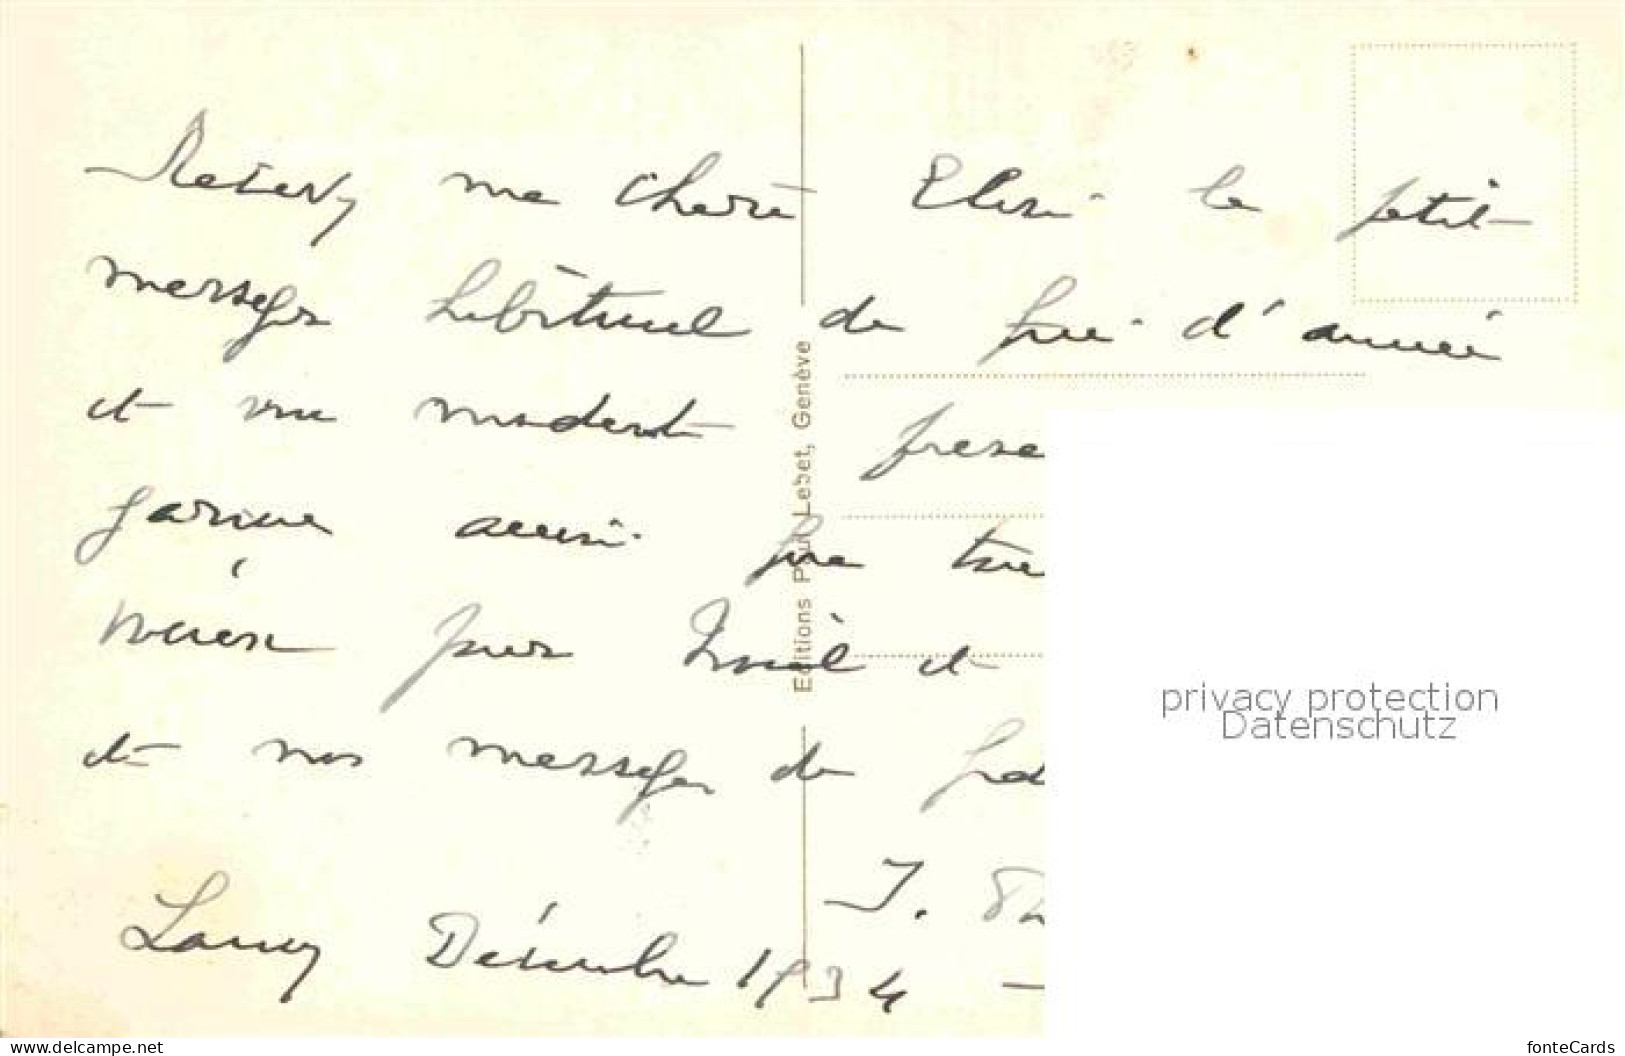 Recevez ma chère Elisi le petit
message habituel de fin d'année
et un modest prése
aussi que
pour Noël et
et nos messages de
J.
Lancy Décembre 1934
Editions Paul Lebet, Genève
privacy protection
Datenschutz
www.delcampe.net
fonteCards